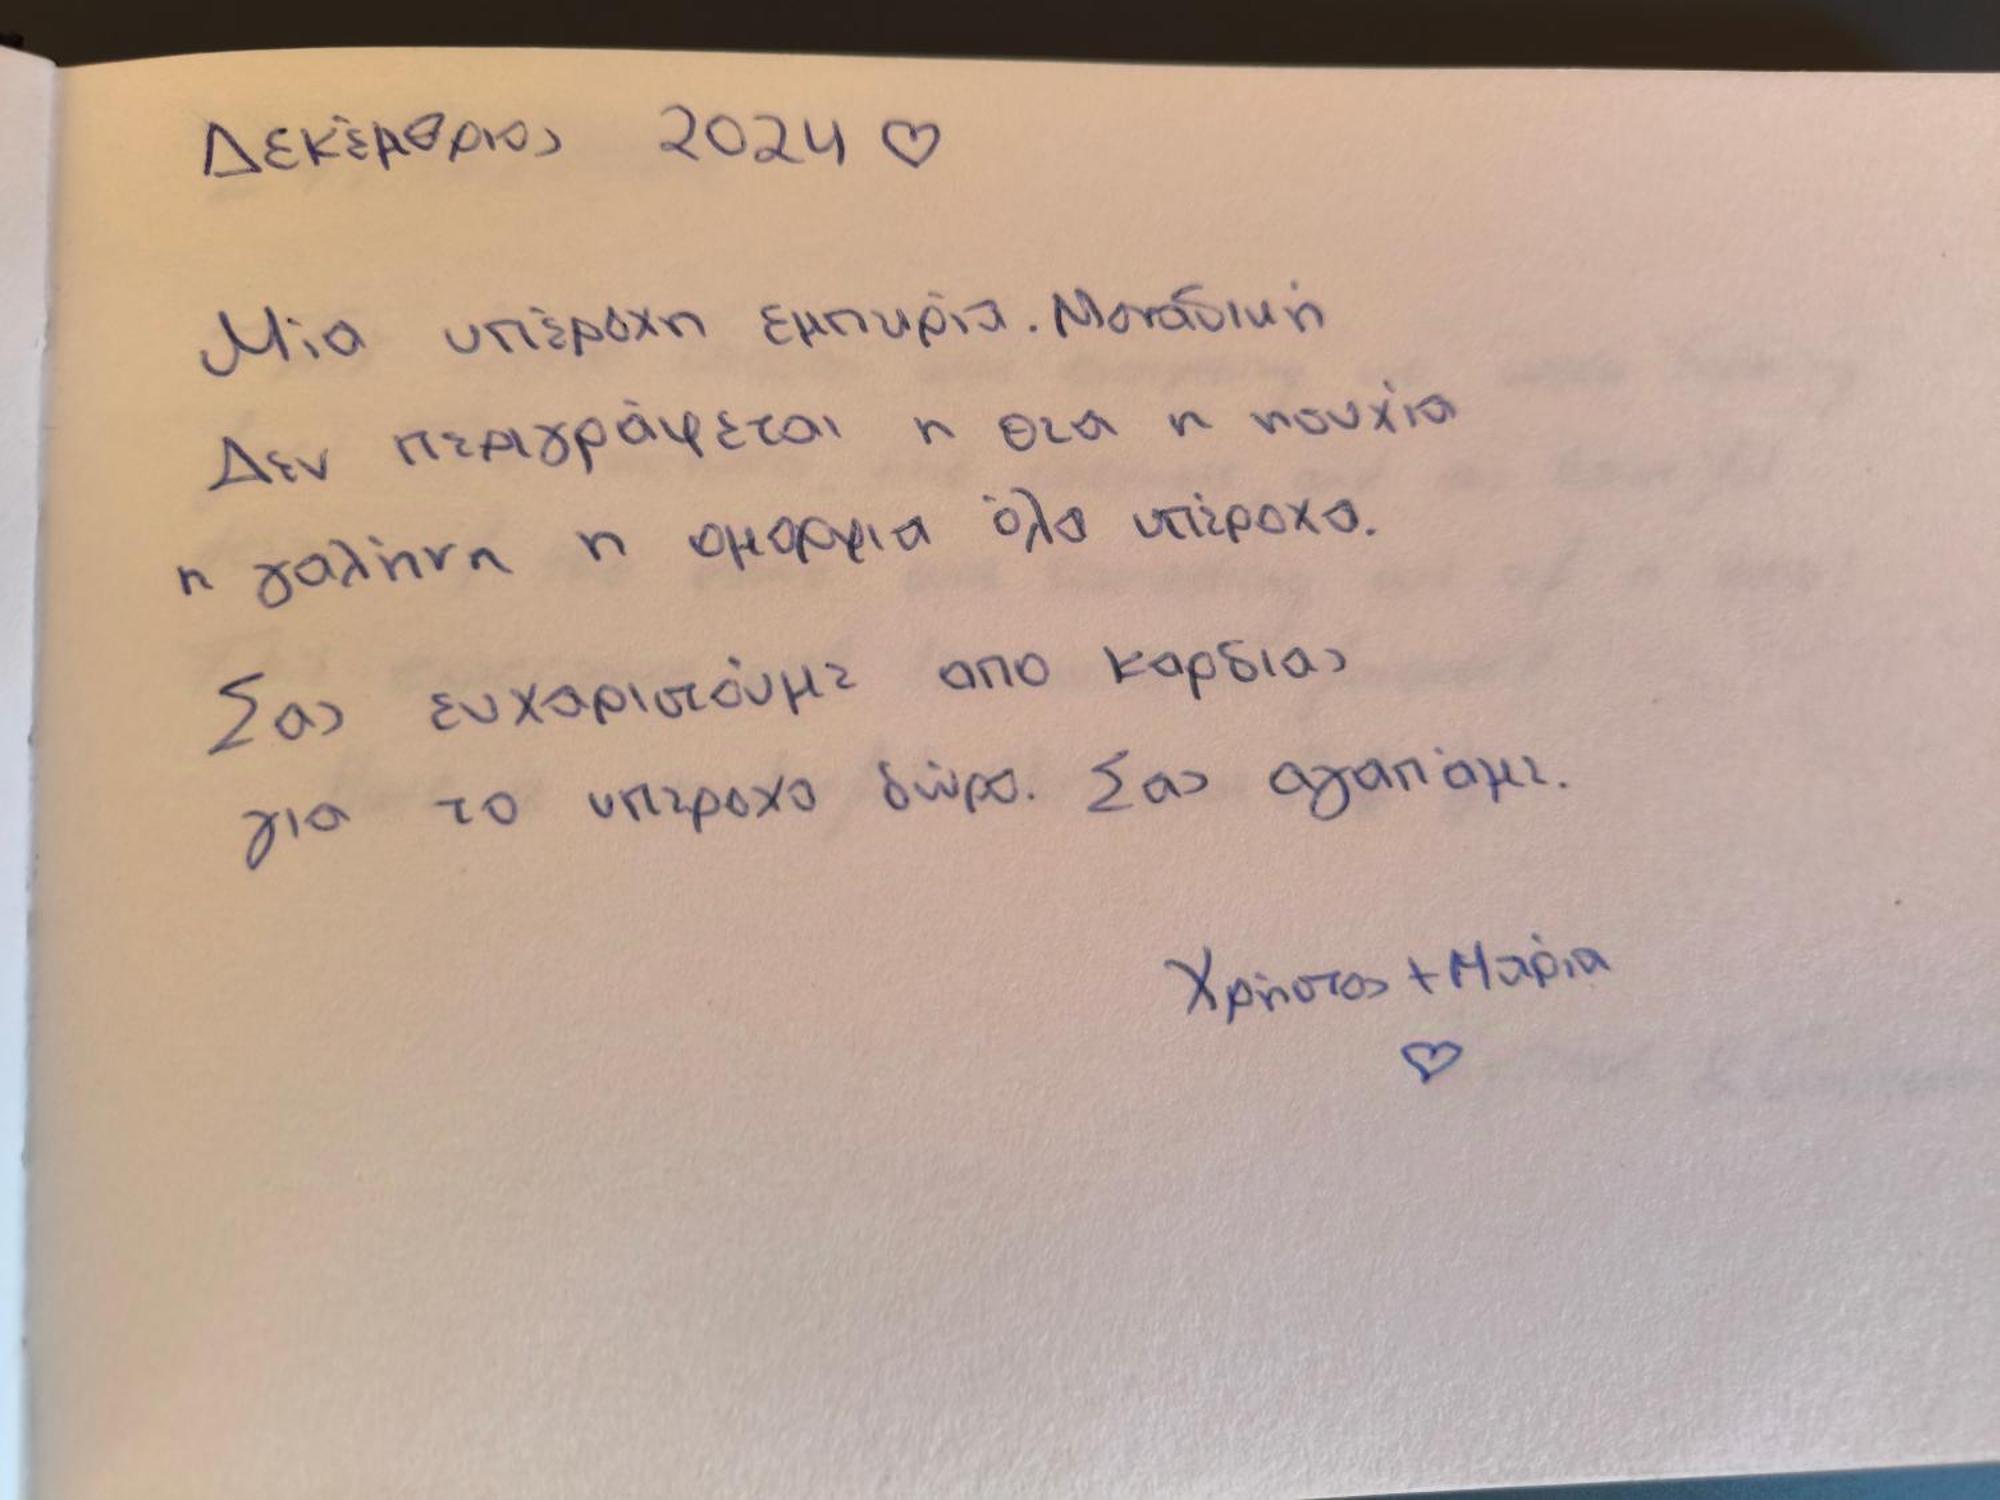 Δεκέμβριος 2024 ♡
Μία υπέροχη εμπυρία. Μοναδική
Δεν περιγράφεται η θεα η ησυχία
η γαλήνη η ομορφια όλα υπέροχα.
Σας ευχαριστούμε απο καρδιας
για το υπεροχο δώρο. Σας αγαπάμε.
Χρήστος + Μαρία
♡